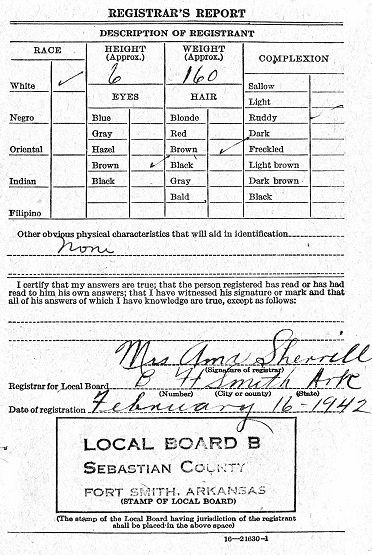 REGISTRAR'S REPORT
DESCRIPTION OF REGISTRANT
RACE HEIGHT (Approx.) WEIGHT (Approx.) COMPLEXION
6 160
White ✓ EYES HAIR Sallow
Light
Negro Blue Blonde Ruddy ✓
Gray Red Dark
Oriental Hazel Brown ✓ Freckled
Brown ✓ Black Light brown
Indian Black Gray Dark brown
Bald Black
Filipino
Other obvious physical characteristics that will aid in identification
None
I certify that my answers are true; that the person registered has read or has had
read to him his own answers; that I have witnessed his signature or mark and that
all of his answers of which I have knowledge are true, except as follows:
Mrs Sherrill
(Signature of registrar)
Registrar for Local Board B Ft Smith Ark
(Number) (City or county) (State)
Date of registration February 16-1942
LOCAL BOARD B
SEBASTIAN COUNTY
FORT SMITH, ARKANSAS
(STAMP OF LOCAL BOARD)
(The stamp of the Local Board having jurisdiction of the registrant
shall be placed in the above space)
16—21630-1